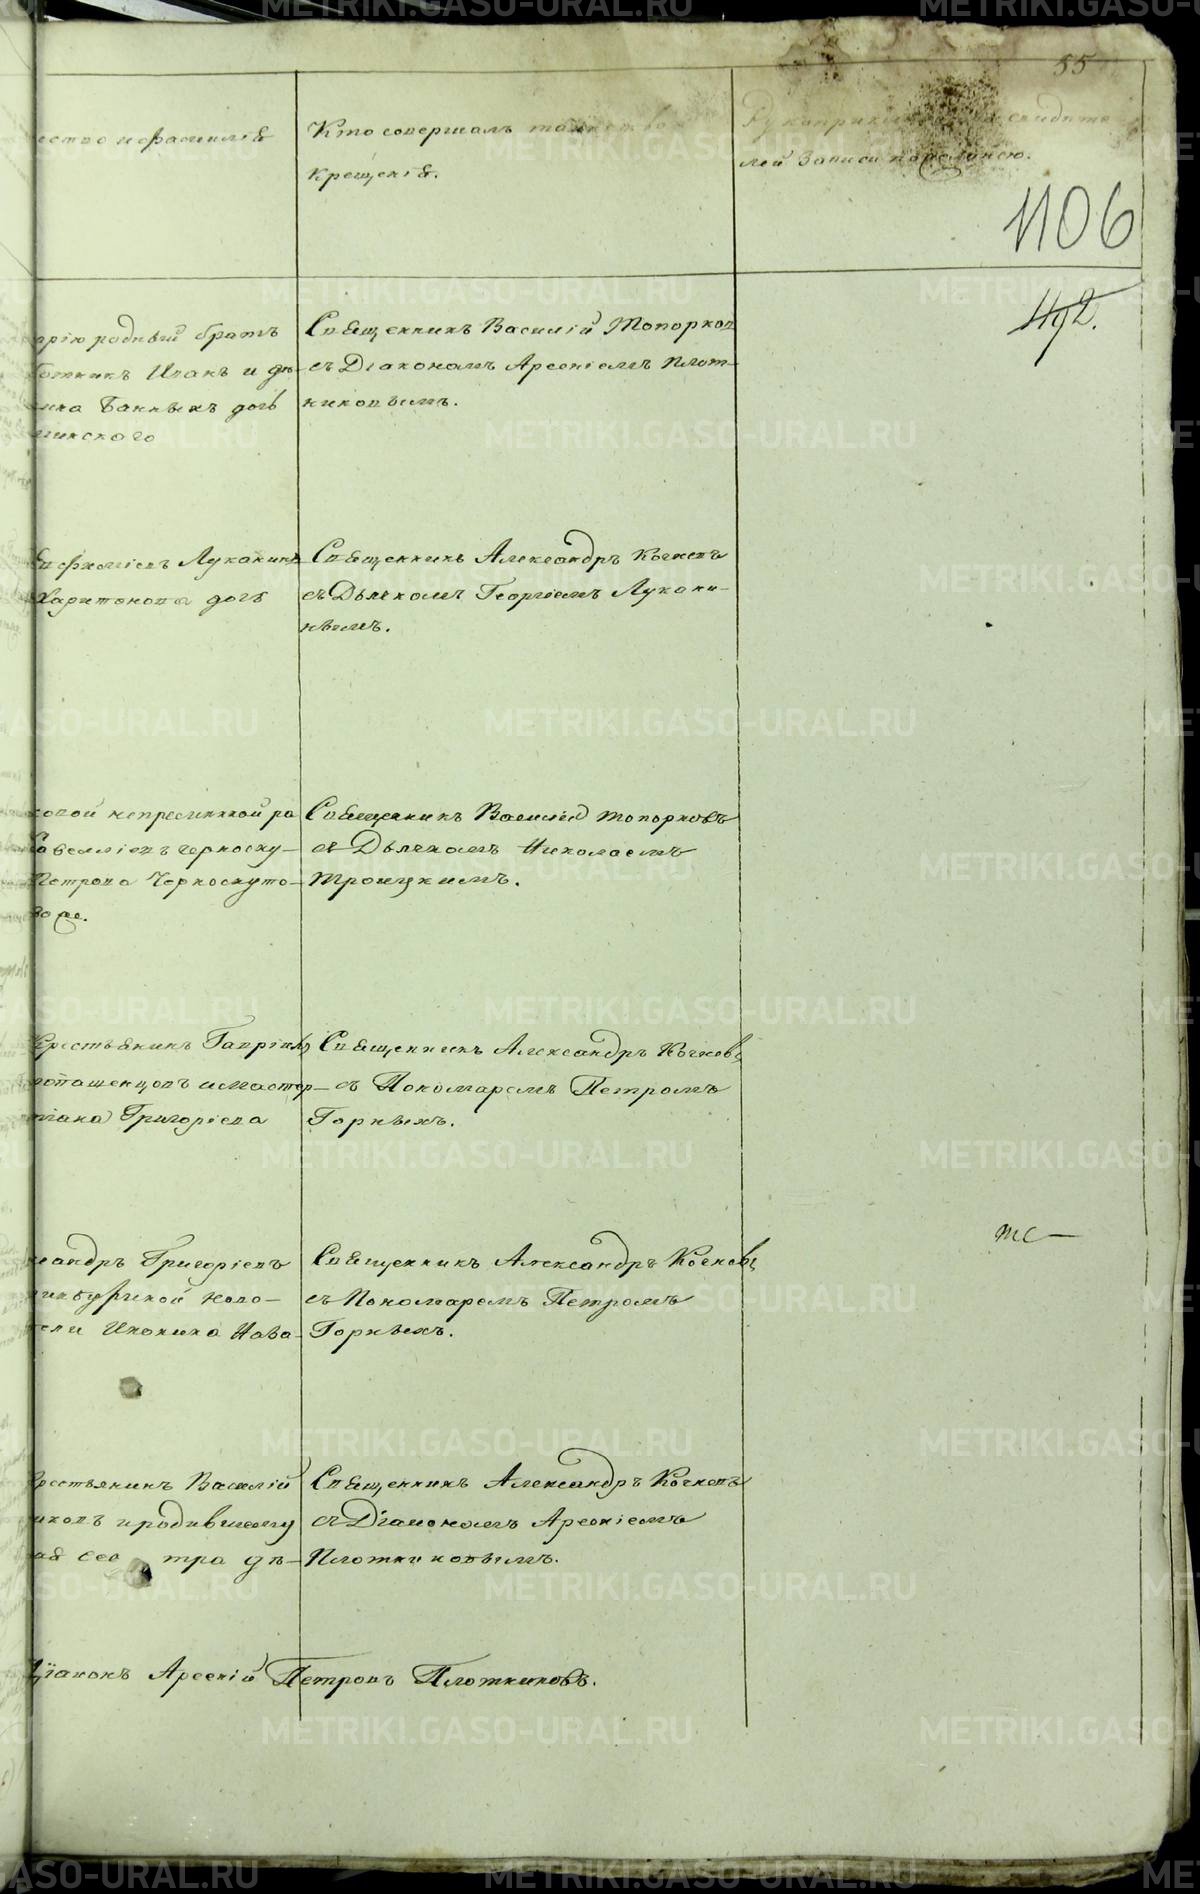 55
ество и фамиліѣ
Кто совершалъ таинство
крещеніѣ.
Рукоприкл свидѣте
лей Записи по желанію.
1106
492.
орію родный братъ
ботникъ Иванъ и дѣ-
Банныхъ дочь
минского
Свѣщенникъ Василій Топорков
съ Діакономъ Арсеніемъ Плот-
никовымъ.
Евфиміевъ Луканинъ
Харитонова дочь
Свѣщенникъ Александръ Кочневъ
съ Дьячкомъ Георгіемъ Лукани-
нымъ.
ховой непремѣнной ра
Савелліевъ Черноску-
Петрова Черноскуто-
воае.
Свѣщенникъ Василій Топорковъ
съ Дьячкомъ Николаемъ
Троицкимъ.
Крестьѣнинъ Гавріилъ
ропашенцовъ и мастер-
тіана Григоріева
Свѣщенникъ Александръ Кочневъ
съ Пономаремъ Петромъ
Горныхъ.
ксандръ Григоріевъ
ринбургской коло-
тели Иконика Нава-
Свѣщенникъ Александръ Кочневъ
съ Пономаремъ Петромъ
Горныхъ.
тс—
крестьянинъ Василій
иковъ и родившему
наѣ сес тра дѣ-
Свѣщенникъ Александръ Кочневъ
съ Діакономъ Арсеніемъ
Плотниковымъ.
Діаконъ Арсеній Петровъ Плотниковъ.
METRIKI.GASO-URAL.RU